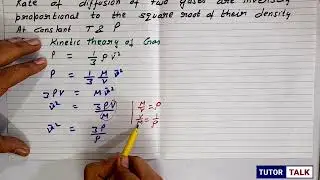 Rate of diffusion of two gases are inversely
proportional to the square root of their density
At constant T & P
Kinetic Theory of Gas
P = 1/3 ρ v̄²
P = 1/3 M/V v̄²
3PV = M v̄²
v̄² = 3PV/M | M/V = ρ
v̄² = 3P/ρ | V/M = 1/ρ
TUTOR TALK